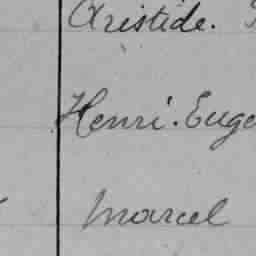 Aristide.
Henri. Euge
Marcel